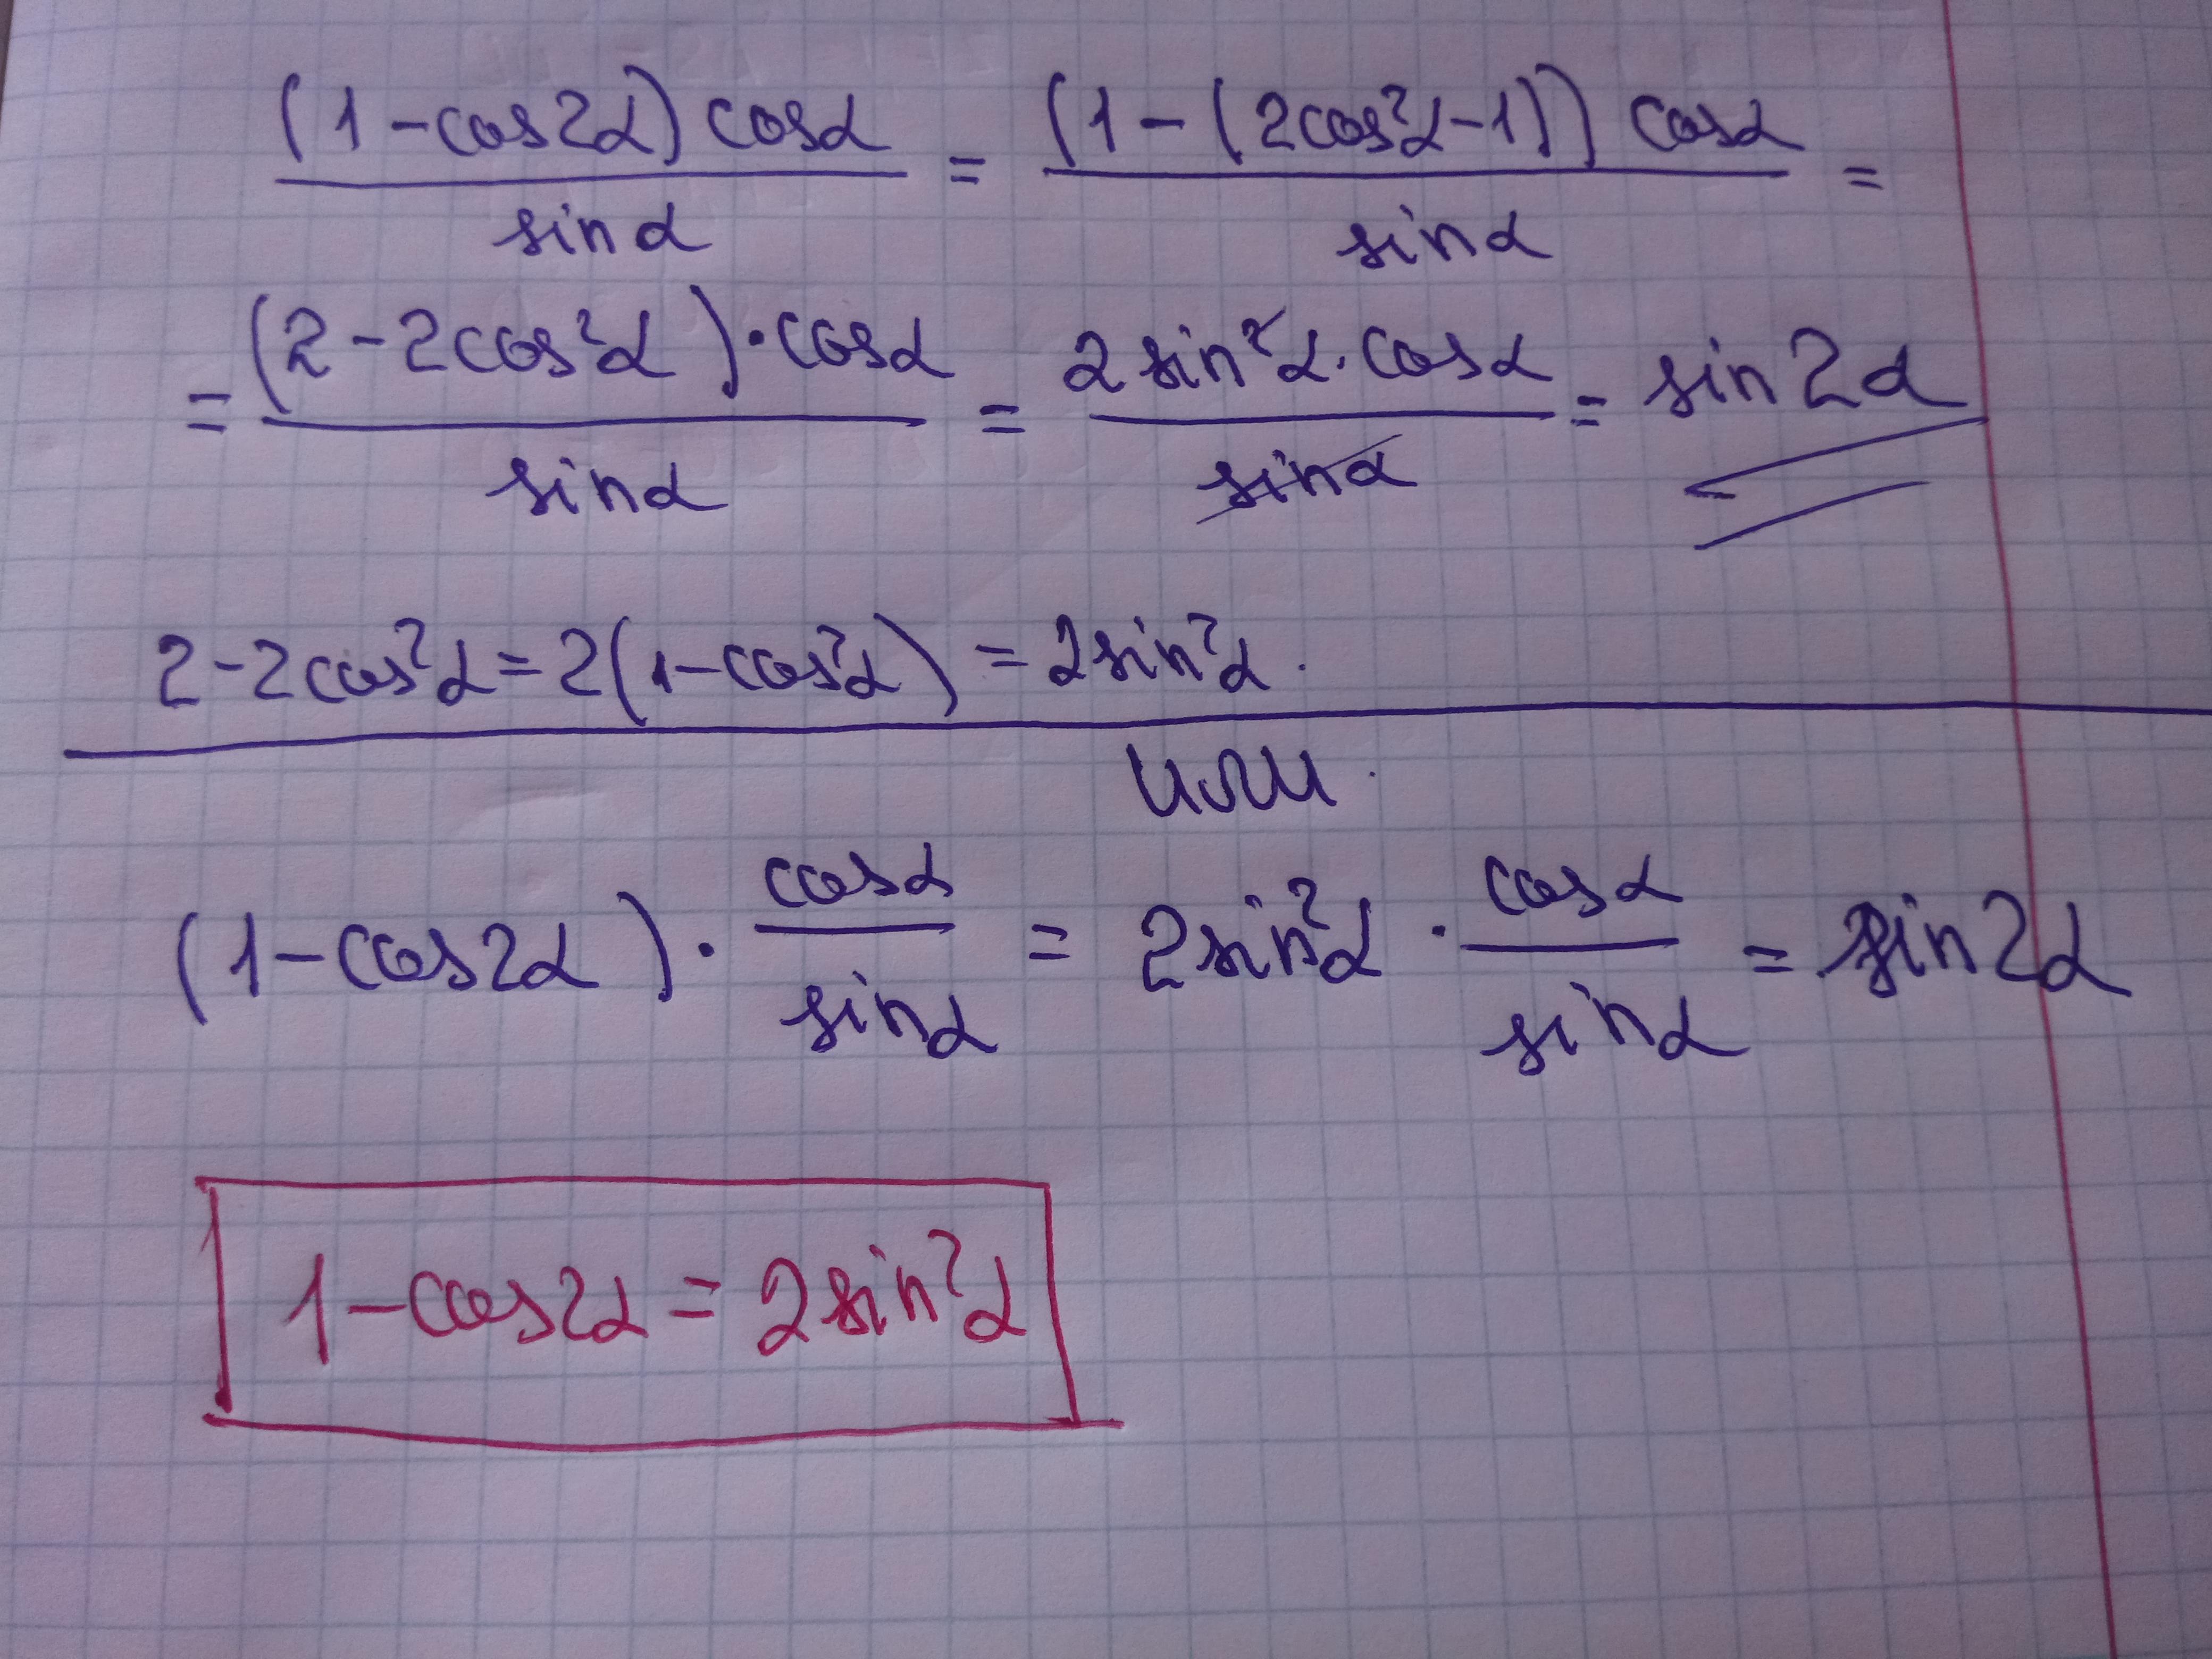 (1-cos2α)cosα / sinα = (1-(2cos²α-1))cosα / sinα =
= (2-2cos²α)·cosα / sinα = 2sin²α·cosα / sinα = sin2α
2-2cos²α=2(1-cos²α)=2sin²α.
или.
(1-cos2α)· cosα / sinα = 2sin²α · cosα / sinα = sin2α
1-cos2α=2sin²α